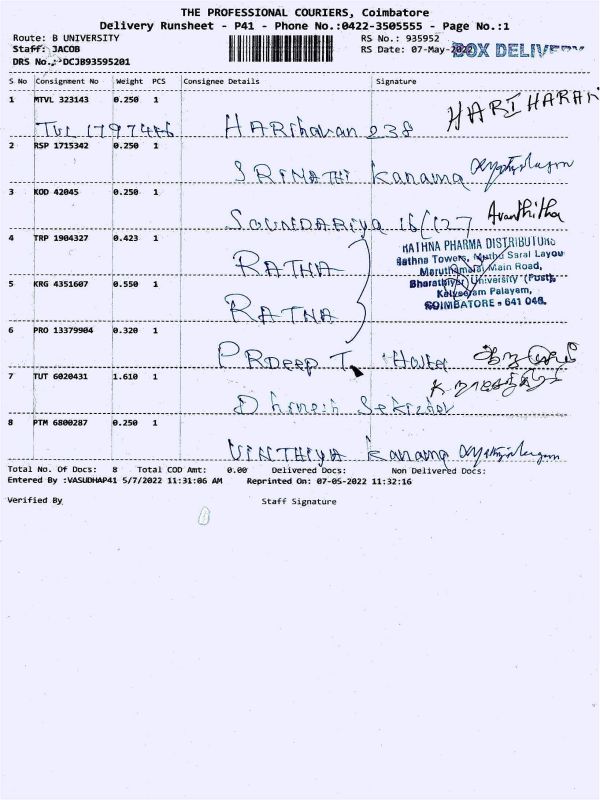 THE PROFESSIONAL COURIERS, Coimbatore
Delivery Runsheet - P41 - Phone No.:0422-3505555 - Page No.:1
Route: B UNIVERSITY
RS No.: 935952
Staff: JACOB
RS Date: 07-May-2022
BOX DELIVERY
DRS No.: DCJB93595201
S No Consignment No Weight PCS Consignee Details Signature
1 MTVL 323143 0.250 1
HARIHARAN
TVL 1797446 HARIharan 238
2 RSP 1715342 0.250 1
SRIMATHI Kanama
3 KOD 42045 0.250 1
SOUNDARIYA 16/127 Avanthitha
4 TRP 1904327 0.423 1
RATHNA PHARMA DISTRIBUTORS
Rathna Towers, Muthu Saral Layou
RATHA
Maruthamalai Main Road,
5 KRG 4351607 0.550 1
Bharathiyar University (Post),
Kalveeram Palayam,
RATNA
COIMBATORE - 641 046.
6 PRO 13379904 0.320 1
PRDeep T.
7 TUT 6020431 1.610 1
Dhinesh
8 PTM 6800287 0.250 1
VINTHIYA Kanama
Total No. Of Docs: 8 Total COD Amt: 0.00 Delivered Docs: Non Delivered Docs:
Entered By :VASUDHAP41 5/7/2022 11:31:06 AM Reprinted On: 07-05-2022 11:32:16
Verified By Staff Signature